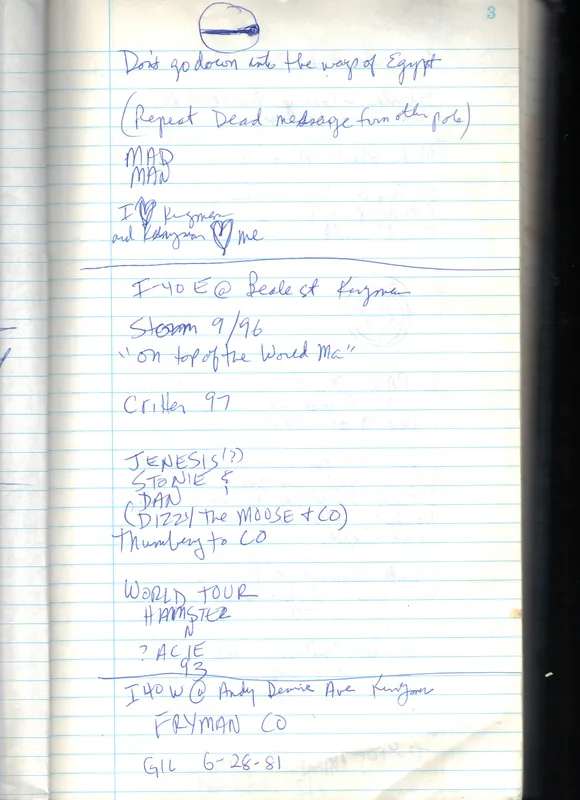 3
Don't go down into the ways of Egypt
(Repeat Dead message from other pole)
MAD
MAN
I ♡ Kingman
and Kingman ♡ me
I-40 E @ Beale st Kingman
Storm 9/96
"on top of the World Ma"
Critter 97
JENESIS(?)
STONIE &
DAN
(DIZZY the MOOSE & CO)
Thumbing to CO
WORLD TOUR
HAMSTER
N
? ACIE
93
I 40 W @ Andy Devine Ave Kingman
FRYMAN CO
GIL 6-28-81